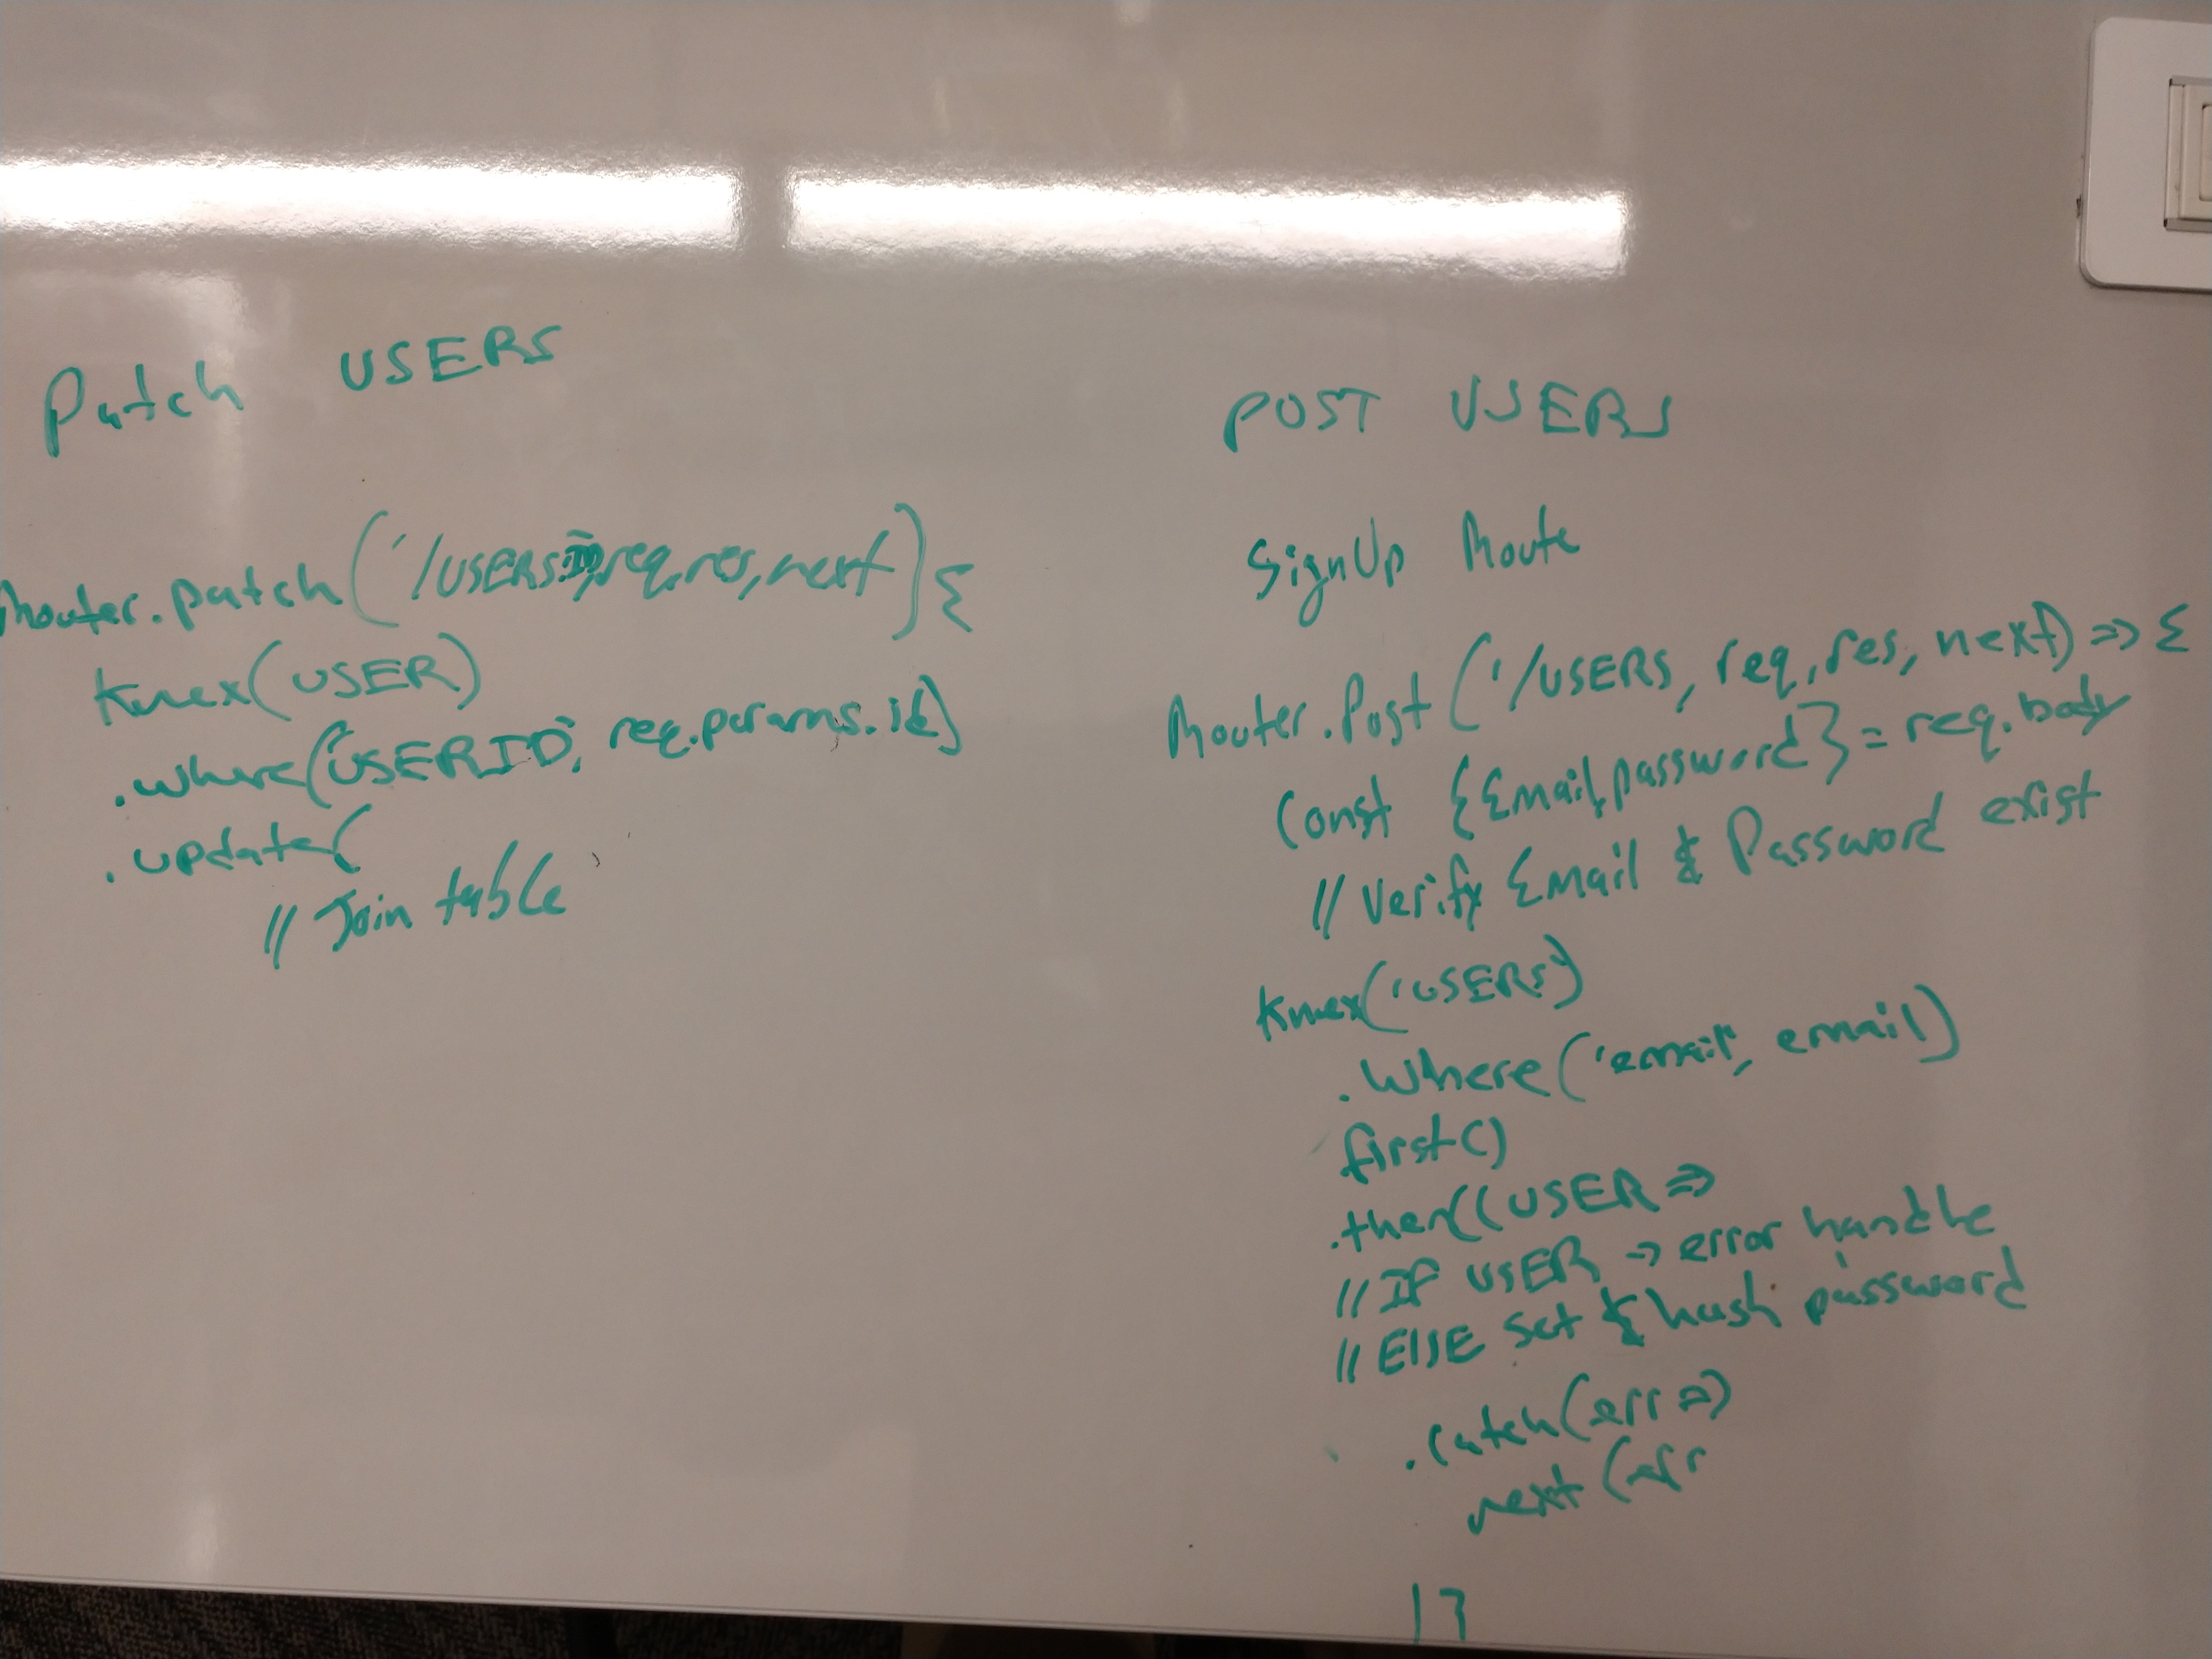 Patch USERS
Router.patch('/USERS:ID,req,res,next){
Knex(USER)
.where('USERID', req.params.id)
.update(
// Join table
POST USERS
SignUp Route
Router.Post('/USERS, req, res, next) => {
Const {Email,password} = req.body
// Verify Email & Password exist
Knex('USERS')
.Where('email', email)
first()
.then((USER =>
// If USER -> error handle
// ElSE set & hash password
.catch(err =>)
next(err
17